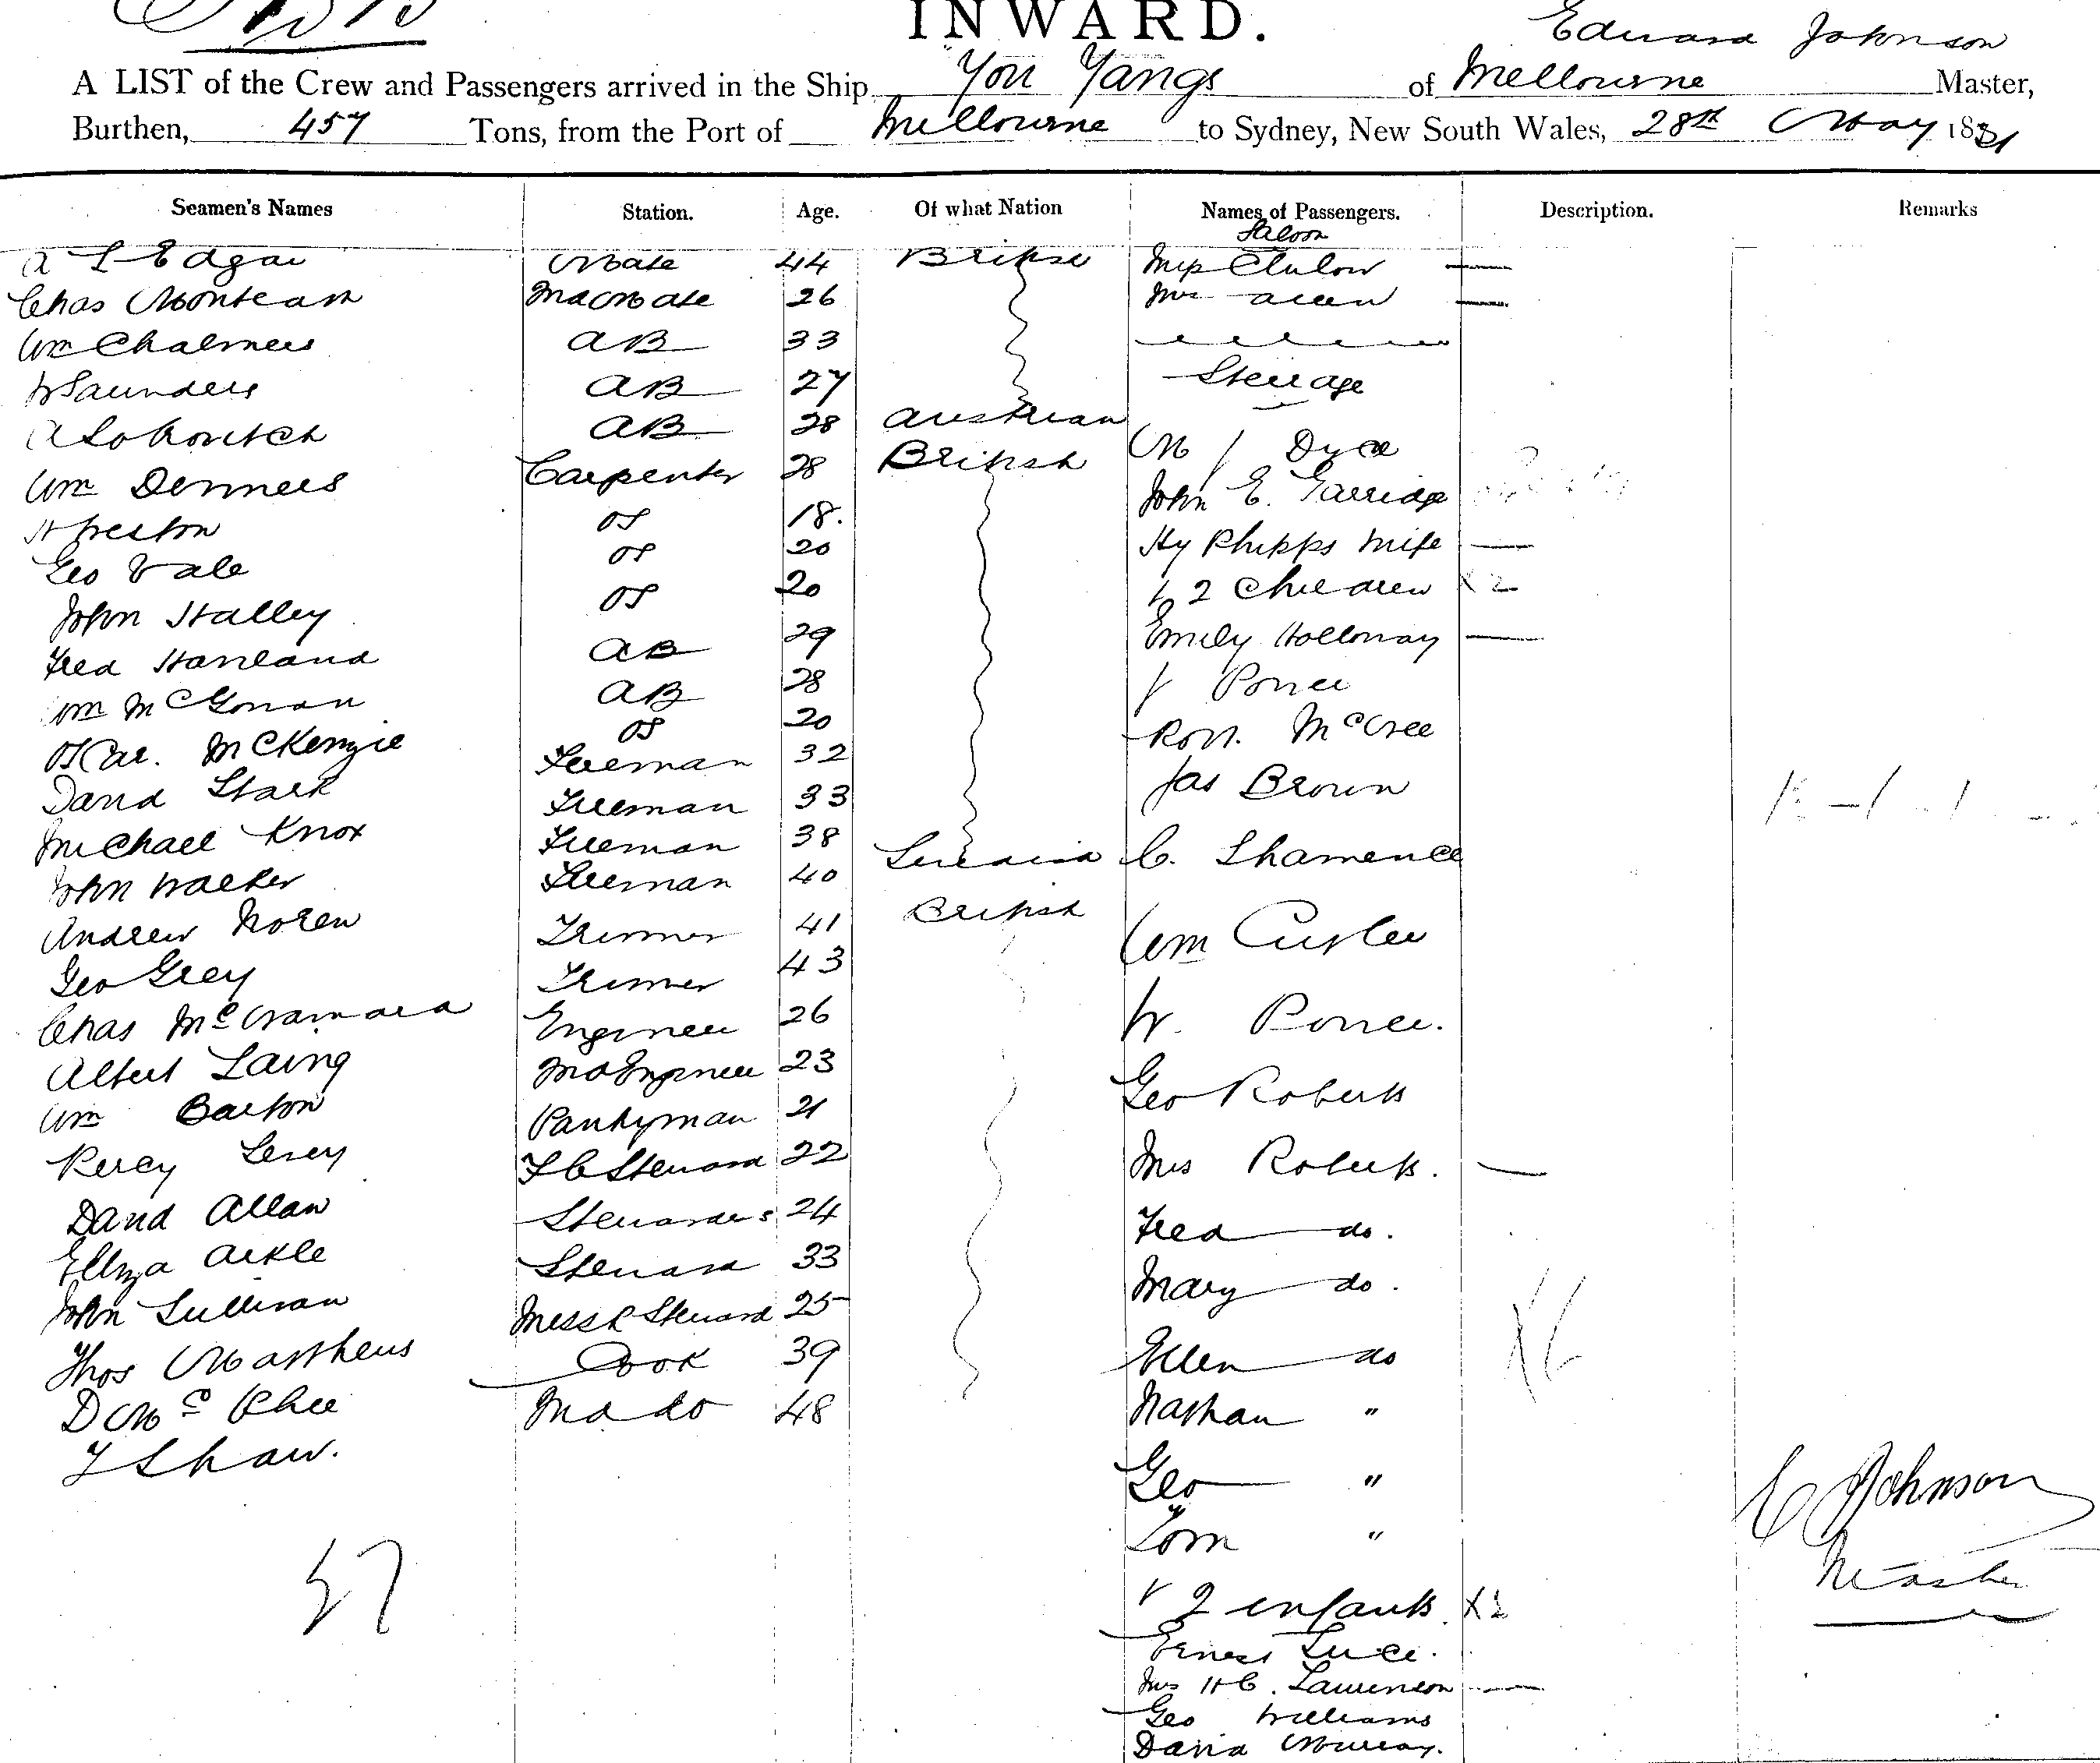 INWARD.
Edward Johnson
A LIST of the Crew and Passengers arrived in the Ship You Yangs of Melbourne Master,
Burthen, 457 Tons, from the Port of Melbourne to Sydney, New South Wales, 28th May 18
Seamen's Names Station. Age. Of what Nation Names of Passengers. Description. Remarks
Saloon
A L Edgar Mate 44 British
Chas Monteath 2nd Mate 26 Mrs Allen
Wm Chalmers AB 33
W Saunders AB 27 Steerage
AB 28 Austrian
Wm Carpenter 28 British M J Dyce
H Preston OS 18. John E.
Geo Vale OS 20 Hy Phipps Wife
John Halley OS 20 & 2 Children X 2
Fred AB 29 Emily Holloway
Wm McGowan AB 28 J Power
McKenzie OS 20 McCree
David Stark Fireman 32 Jas Brown
Michael Knox Fireman 33
John Walker Fireman 38 C.
Andrew Noren Fireman 40
Geo Grey Trimmer 41 British Wm
Chas McNamara Trimmer 43
Albert Laing Engineer 26 W. Power.
Wm Barton 2nd Engineer 23 Geo Roberts
Percy Pantryman 21
David Allan F C Steward 22 Mrs Roberts.
Ellza Arkle Stewardess 24 Fred do.
John Sullivan Steward 33 Mary do.
Thos Matthews Mess R Steward 25
D Mc Cook 39 Ellen do
T Shaw. 2nd do 48 Nathan "
Geo "
Tom "
& 2 infants X 2
Ernest Luce.
Mrs H C. Lawrenson
Geo Williams
David Murray.
E Johnson
Master